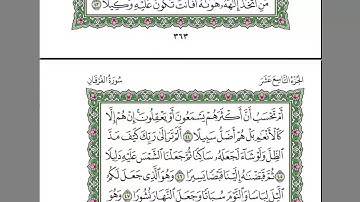 مَنِ ٱتَّخَذَ إِلَٰهَهُۥ هَوَىٰهُ أَفَأَنتَ تَكُونُ عَلَيْهِ وَكِيلًا ٤٣
٣٦٣
الجزء التاسع عشر سورة الفرقان
أَمْ تَحْسَبُ أَنَّ أَكْثَرَهُمْ يَسْمَعُونَ أَوْ يَعْقِلُونَ إِنْ هُمْ إِلَّا
كَٱلْأَنْعَٰمِ بَلْ هُمْ أَضَلُّ سَبِيلًا ٤٤ أَلَمْ تَرَ إِلَىٰ رَبِّكَ كَيْفَ مَدَّ
ٱلظِّلَّ وَلَوْ شَآءَ لَجَعَلَهُۥ سَاكِنًا ثُمَّ جَعَلْنَا ٱلشَّمْسَ عَلَيْهِ دَلِيلًا
٤٥ ثُمَّ قَبَضْنَٰهُ إِلَيْنَا قَبْضًا يَسِيرًا ٤٦ وَهُوَ ٱلَّذِى جَعَلَ لَكُمُ
ٱلَّيْلَ لِبَاسًا وَٱلنَّوْمَ سُبَاتًا وَجَعَلَ ٱلنَّهَارَ نُشُورًا ٤٧ وَهُوَ